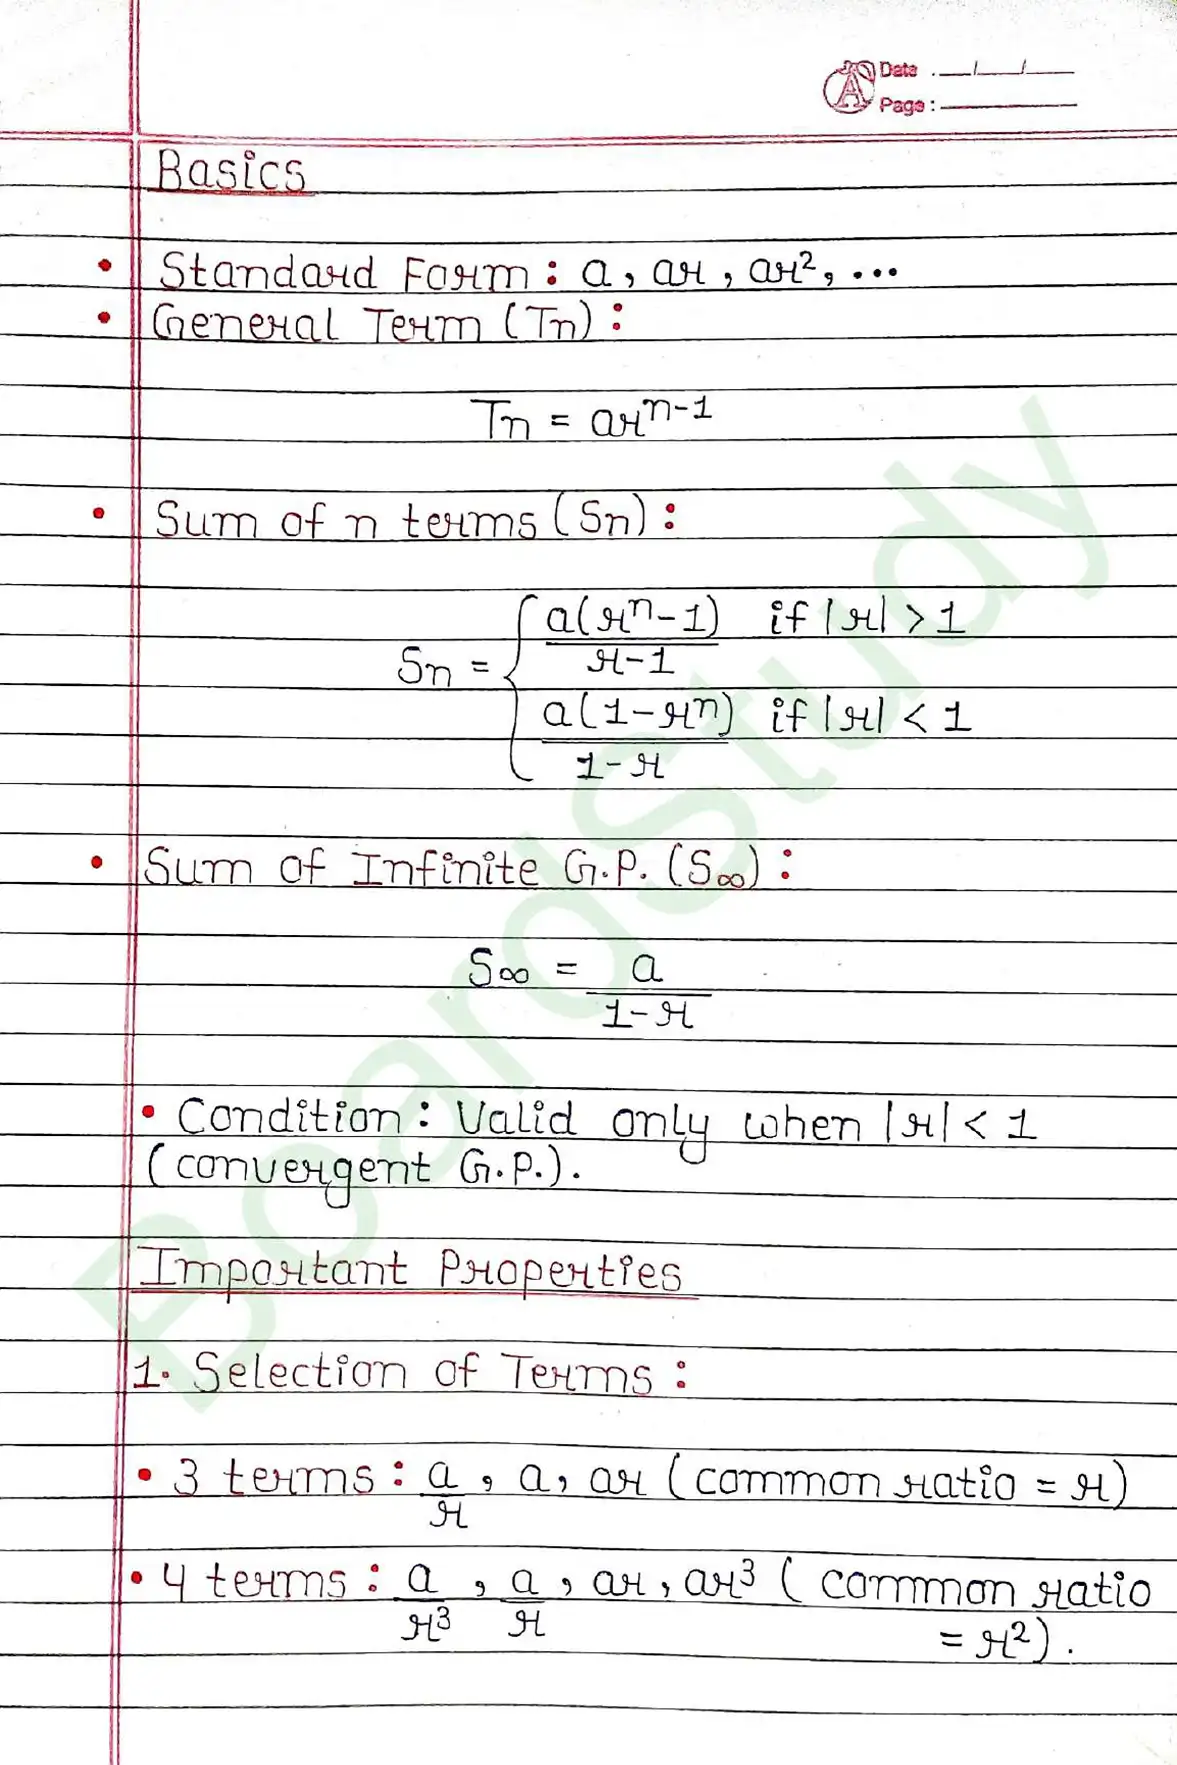 Date . __/__/__
Page : ______
Basics
• Standard Form : a, ar, ar², ...
• General Term (Tn) :
Tn = arⁿ⁻¹
• Sum of n terms (Sn) :
Sn = { a(rⁿ-1)/(r-1) if |r| > 1
a(1-rⁿ)/(1-r) if |r| < 1
• Sum of Infinite G.P. (S∞) :
S∞ = a/(1-r)
• Condition : Valid only when |r| < 1
(convergent G.P.).
Important Properties
1. Selection of Terms :
• 3 terms : a/r, a, ar (common ratio = r)
• 4 terms : a/r³, a/r, ar, ar³ (common ratio
= r²).
BoardStudy